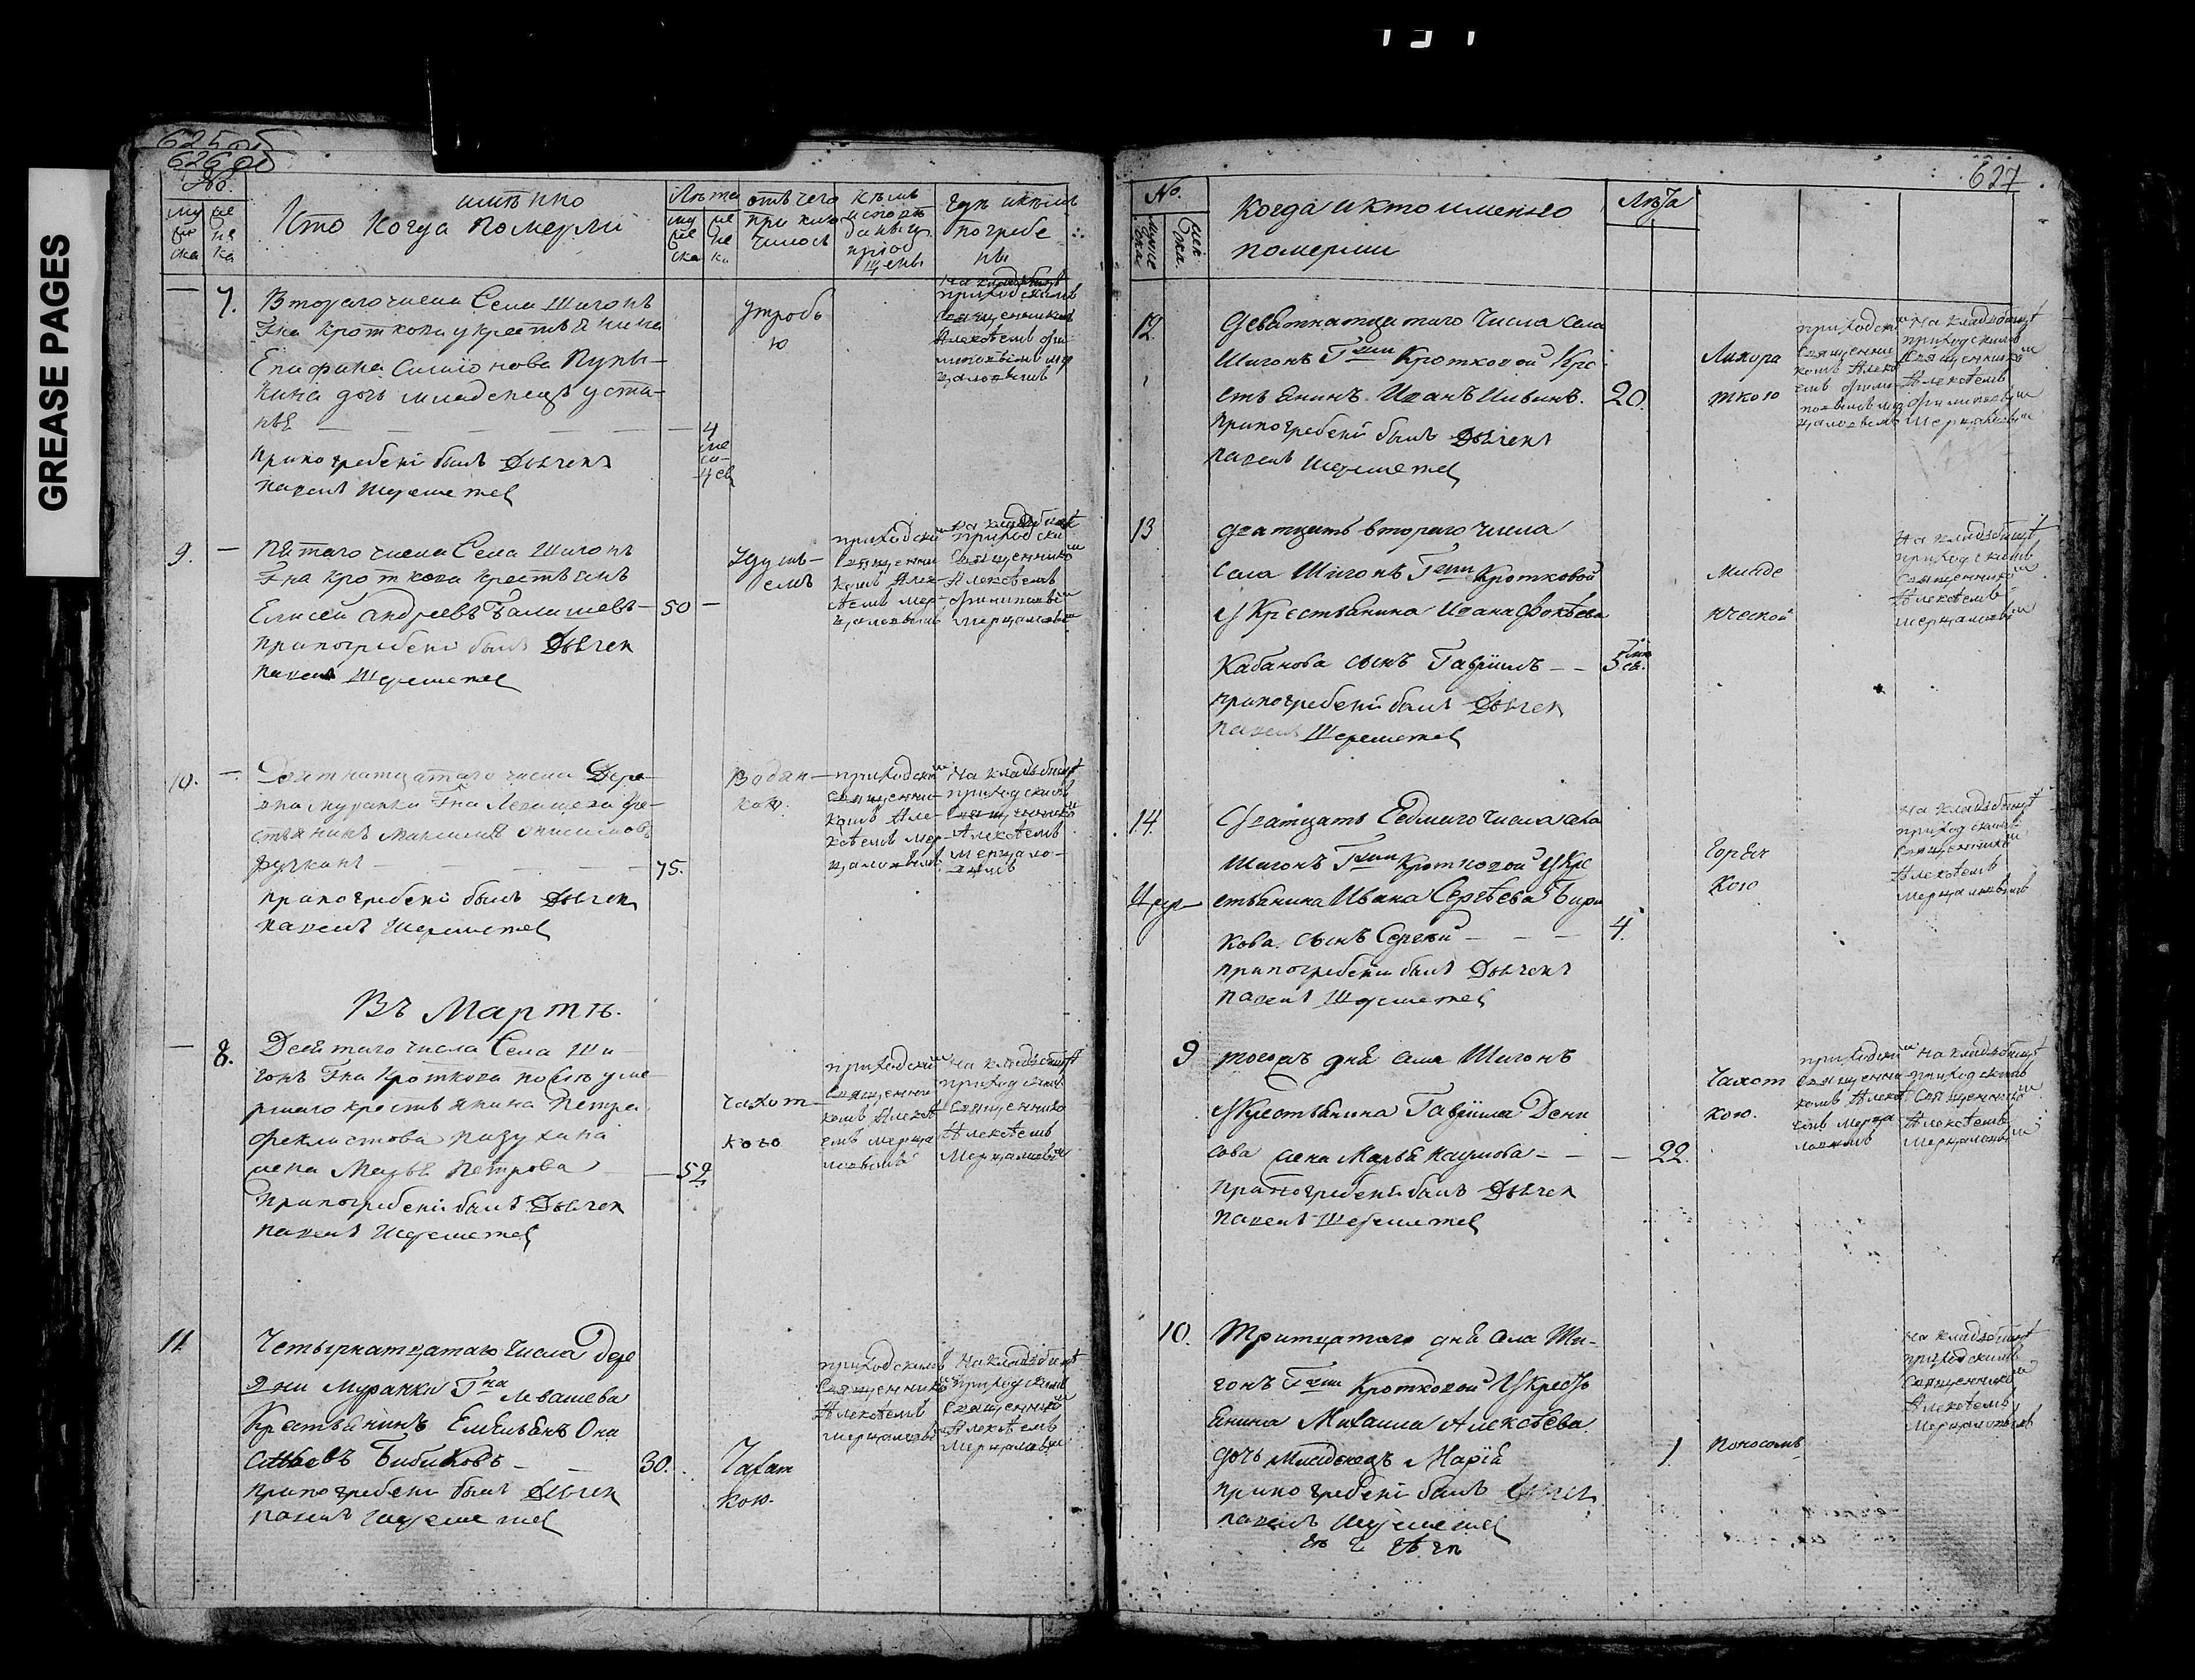 GREASE PAGES
625 об
626 об
No.
му
же
ска
же
нс
ка
имѣнно
Кто когда померлі
Лѣта
му
же
ска
же
нс
ка
отъ чего
приклю
чилось
кѣмъ
исповѣ
даны и
пріоб
щены
Гдѣ и кѣмъ
погребе
ны
7.
Втораго числа Села Шигонъ
Гна Кроткова у крестьянина
Епифана
дочь младенецъ Уста-
нья
4
ме
ся-
цев
При погребені былъ Дьячекъ
Павелъ Шереметев
утробо
ю
На кладбищѣ
приходскимъ
священникомъ
Алексѣемъ Фи
липовымъ Мер
цаловымъ
9.
Пятаго числа Села Шигонъ
Гна Кроткова крестьянъ
Елисей Андреевъ Балышевъ
50
При погребені былъ Дьячек
Павелъ Шереметев
Удушь-
емъ
приходским
священни
комъ Алек-
сѣемъ Мер-
цаловымъ
На кладбищѣ
приходским
священником
Алексѣемъ
Филиповым
Мерцаловым
10.
Девятнатцатаго числа Дере-
вни Муранки Гна Левашева кре-
стьянинъ Максимъ
75.
При погребені былъ Дьячек
Павелъ Шереметев
Водян-
кою.
приходским
священни-
комъ Але-
ксѣемъ Мер-
цаловымъ
На кладбищѣ
приходскимъ
священником
Алексѣемъ
Мерцало-
вымъ
Въ Мартѣ.
8.
Десятаго числа Села Ши-
гонъ Гна Кроткова послѣ уме-
ршаго крестьянина Петра
Феклистова Пазухина
жена Марья Петрова
52
При погребені былъ Дьячек
Павелъ Шереметев
Чахот-
кою
приходским
священни
комъ Алексѣ
емъ Мерца
ловымъ
На кладбищѣ
приходским
священнико
Алексѣемъ
Мерцаловым
11.
Четырнатцатаго числа Дере
вни Муранки Гна Левашева
Крестьянинъ Емельянъ Она
Бибиковъ
30.
При погребені былъ Дьячек
Павелъ Шереметев
Чахот
кою.
приходскимъ
священником
Алексѣемъ
Мерцаловым
На кладбищѣ
приходским
священником
Алексѣемъ
Мерцаловым
627
No.
муже
ска
жен
ска.
Когда и кто именно
померли
Лѣта
12.
Девятнатцатаго числа села
Шигонъ Гжи Кротковой Кре
стьянинъ Иванъ Ильинъ.
20.
При погребені былъ Дьячекъ
Павелъ Шереметев
Лихора
ткою
приходским
священни
комъ Алексѣ
емъ Фили-
повымъ Мер
цаловымъ
На кладбищѣ
приходскимъ
священником
Алексѣемъ
Филиповым
Мерцаловым
13
Дватцать втораго числа
села Шигонъ Гжи Кротковой
У Крестьянина Ивана Фокѣева
Кабанова сынъ Гавріилъ
5
При погребені былъ Дьячек
Павелъ Шереметев
Младе
нческой
На кладбищѣ
приходскимъ
священником
Алексѣемъ
Мерцаловым
14.
Дватцать Седмаго числа села
Шигонъ Гжи Кротковой У Кре
стьянина Ивана Сергѣева Бирю
кова. сынъ Сергей
4.
При погребени былъ Дьячекъ
Павелъ Шереметев
Горяч
кою
На кладбищѣ
приходским
священником
Алексѣемъ
Мерцаловымъ
9
тогожъ дня села Шигонъ
У Крестьянина Гавріила Дени
сова жена Марья Наумова
22.
При погребені былъ Дьячек
Павелъ Шереметев
Чахот
кою.
приходским
священни
комъ Алексѣ
емъ Мерца
ловымъ
На кладбищѣ
приходскимъ
священником
Алексѣемъ
Мерцаловым
10.
Тритцатаго дня села Ши-
гонъ Гжи Кротковой У Кресть
янина Михаила Алексѣева
дочь младенецъ Марія
1
При погребені былъ Дьячекъ
Павелъ Шереметев
Поносомъ
На кладбищѣ
приходскимъ
священником
Алексѣемъ
Мерцаловымъ